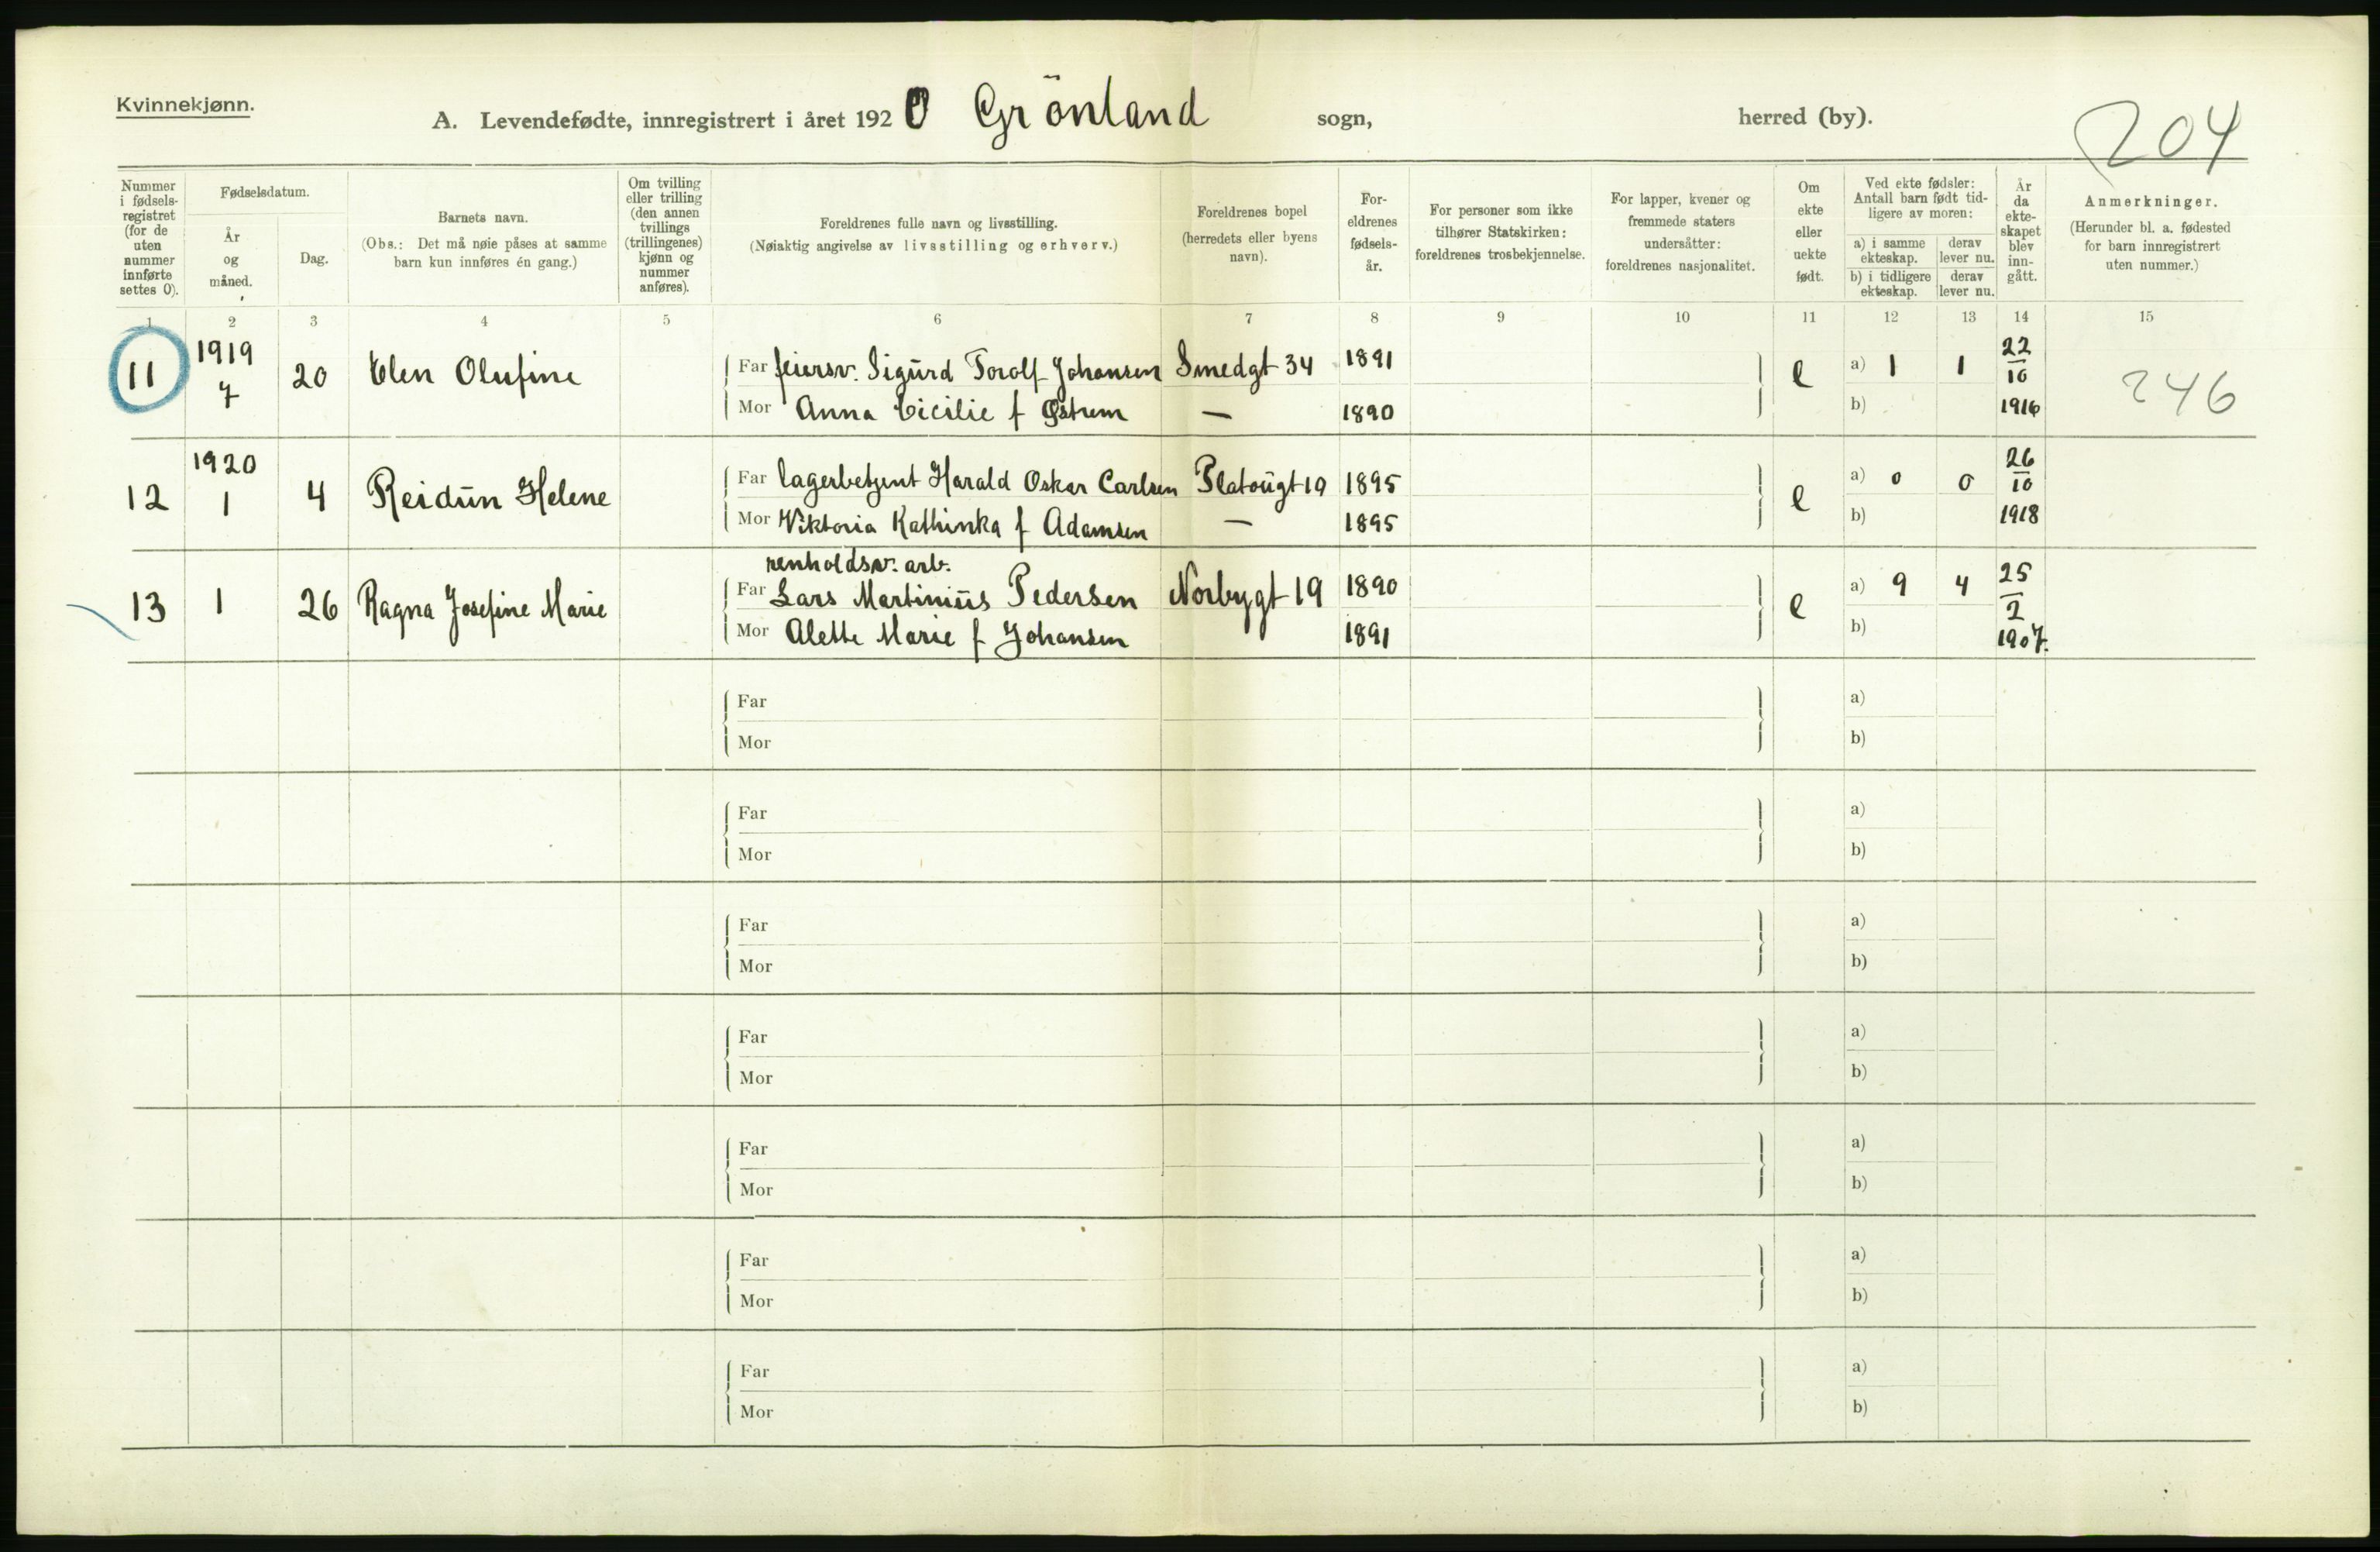 Kvinnekjønn.
A. Levendefødte, innregistrert i året 1920 Grönland sogn, herred (by).
204
Nummer i fødselsregistret (for de uten nummer innførte settes 0).
Fødselsdatum.
År og måned.
Dag.
Barnets navn.
(Obs.: Det må nøie påses at samme barn kun innføres én gang.)
Om tvilling eller trilling (den annen tvillings (trillingenes) kjønn og nummer anføres).
Foreldrenes fulle navn og livsstilling.
(Nøiaktig angivelse av livsstilling og erhverv.)
Foreldrenes bopel (herredets eller byens navn).
Foreldrenes fødselsår.
For personer som ikke tilhører Statskirken: foreldrenes trosbekjennelse.
For lapper, kvener og fremmede staters undersåtter: foreldrenes nasjonalitet.
Om ekte eller uekte født.
Ved ekte fødsler: Antall barn født tidligere av moren:
a) i samme ekteskap. derav lever nu.
b) i tidligere ekteskap. derav lever nu.
År da ekteskapet blev inngått.
Anmerkninger.
(Herunder bl. a. fødested for barn innregistrert uten nummer.)
1 2 3 4 5 6 7 8 9 10 11 12 13 14 15
11 1919 7 20 Elen Olufine Far feiersv. Sigurd Torolf Johansen Smedgt 34 1891 e a) 1 1 22/10 1916 246
Mor Anna Cicilie f Østrem — 1890 b)
12 1920 1 4 Reidun Helene Far lagerbetjent Harald Oskar Carlsen Platougt 19 1895 e a) 0 0 26/10 1918
Mor Viktoria Kathinka f Adamsen — 1895 b)
renholdsv. arb.
13 1 26 Ragna Josefine Marie Far Lars Martinius Pedersen Norbygt 19 1890 e a) 9 4 25/2 1907.
Mor Alette Marie f Johansen 1891 b)
Far a)
Mor b)
Far a)
Mor b)
Far a)
Mor b)
Far a)
Mor b)
Far a)
Mor b)
Far a)
Mor b)
Far a)
Mor b)